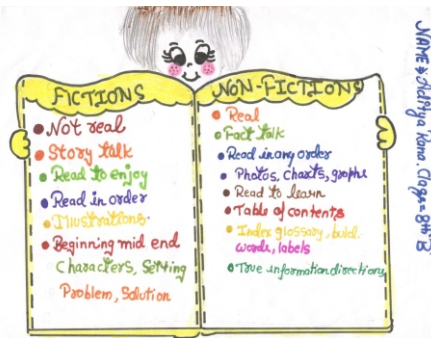 FICTIONS
Not real
Story talk
Read to enjoy
Read in order
Illustrations
Beginning mid end
Characters, Setting
Problem, Solution
NON-FICTIONS
Real
Fact talk
Read in any order
Photos, Charts, graphs
Read to learn
Table of contents
Index glossary, bold
words, labels
True information directions
NAME Aditya Class 8th B